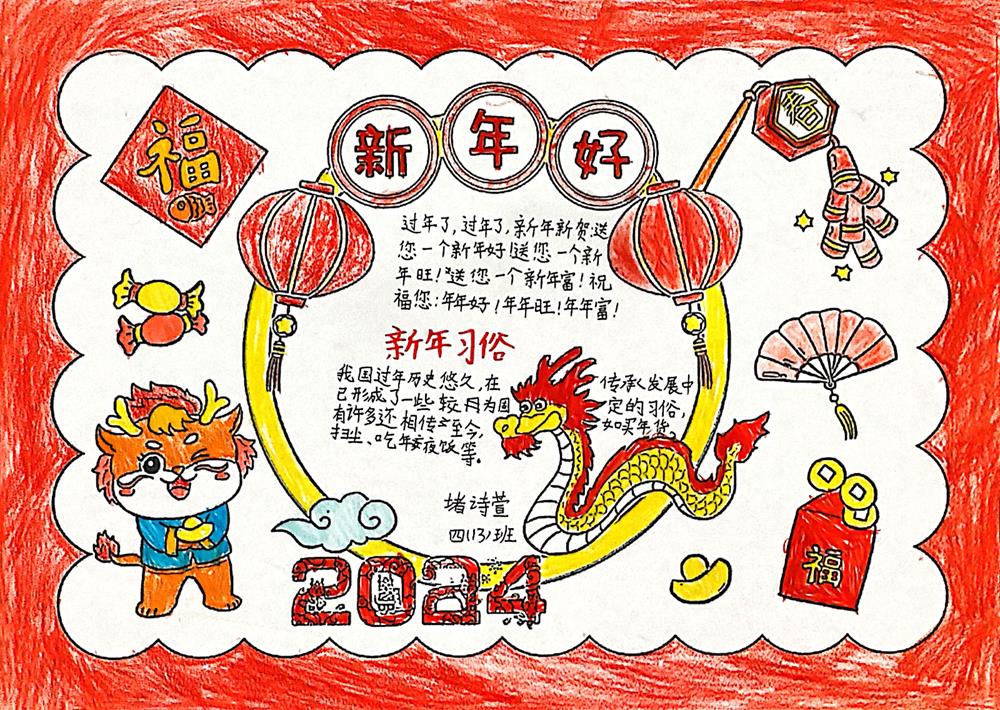 福
新年好
春
过年了,过年了,新年新贺送
您一个新年好!送您一个新
年旺!送您一个新年富!祝
福您:年年好!年年旺!年年富!
新年习俗
我国过年历史悠久,在 传承发展中
已形成了一些较为固 定的习俗,
有许多还相传至今, 如买年货、
扫尘、吃年夜饭等。
堵诗萱
四(13)班
2024
福